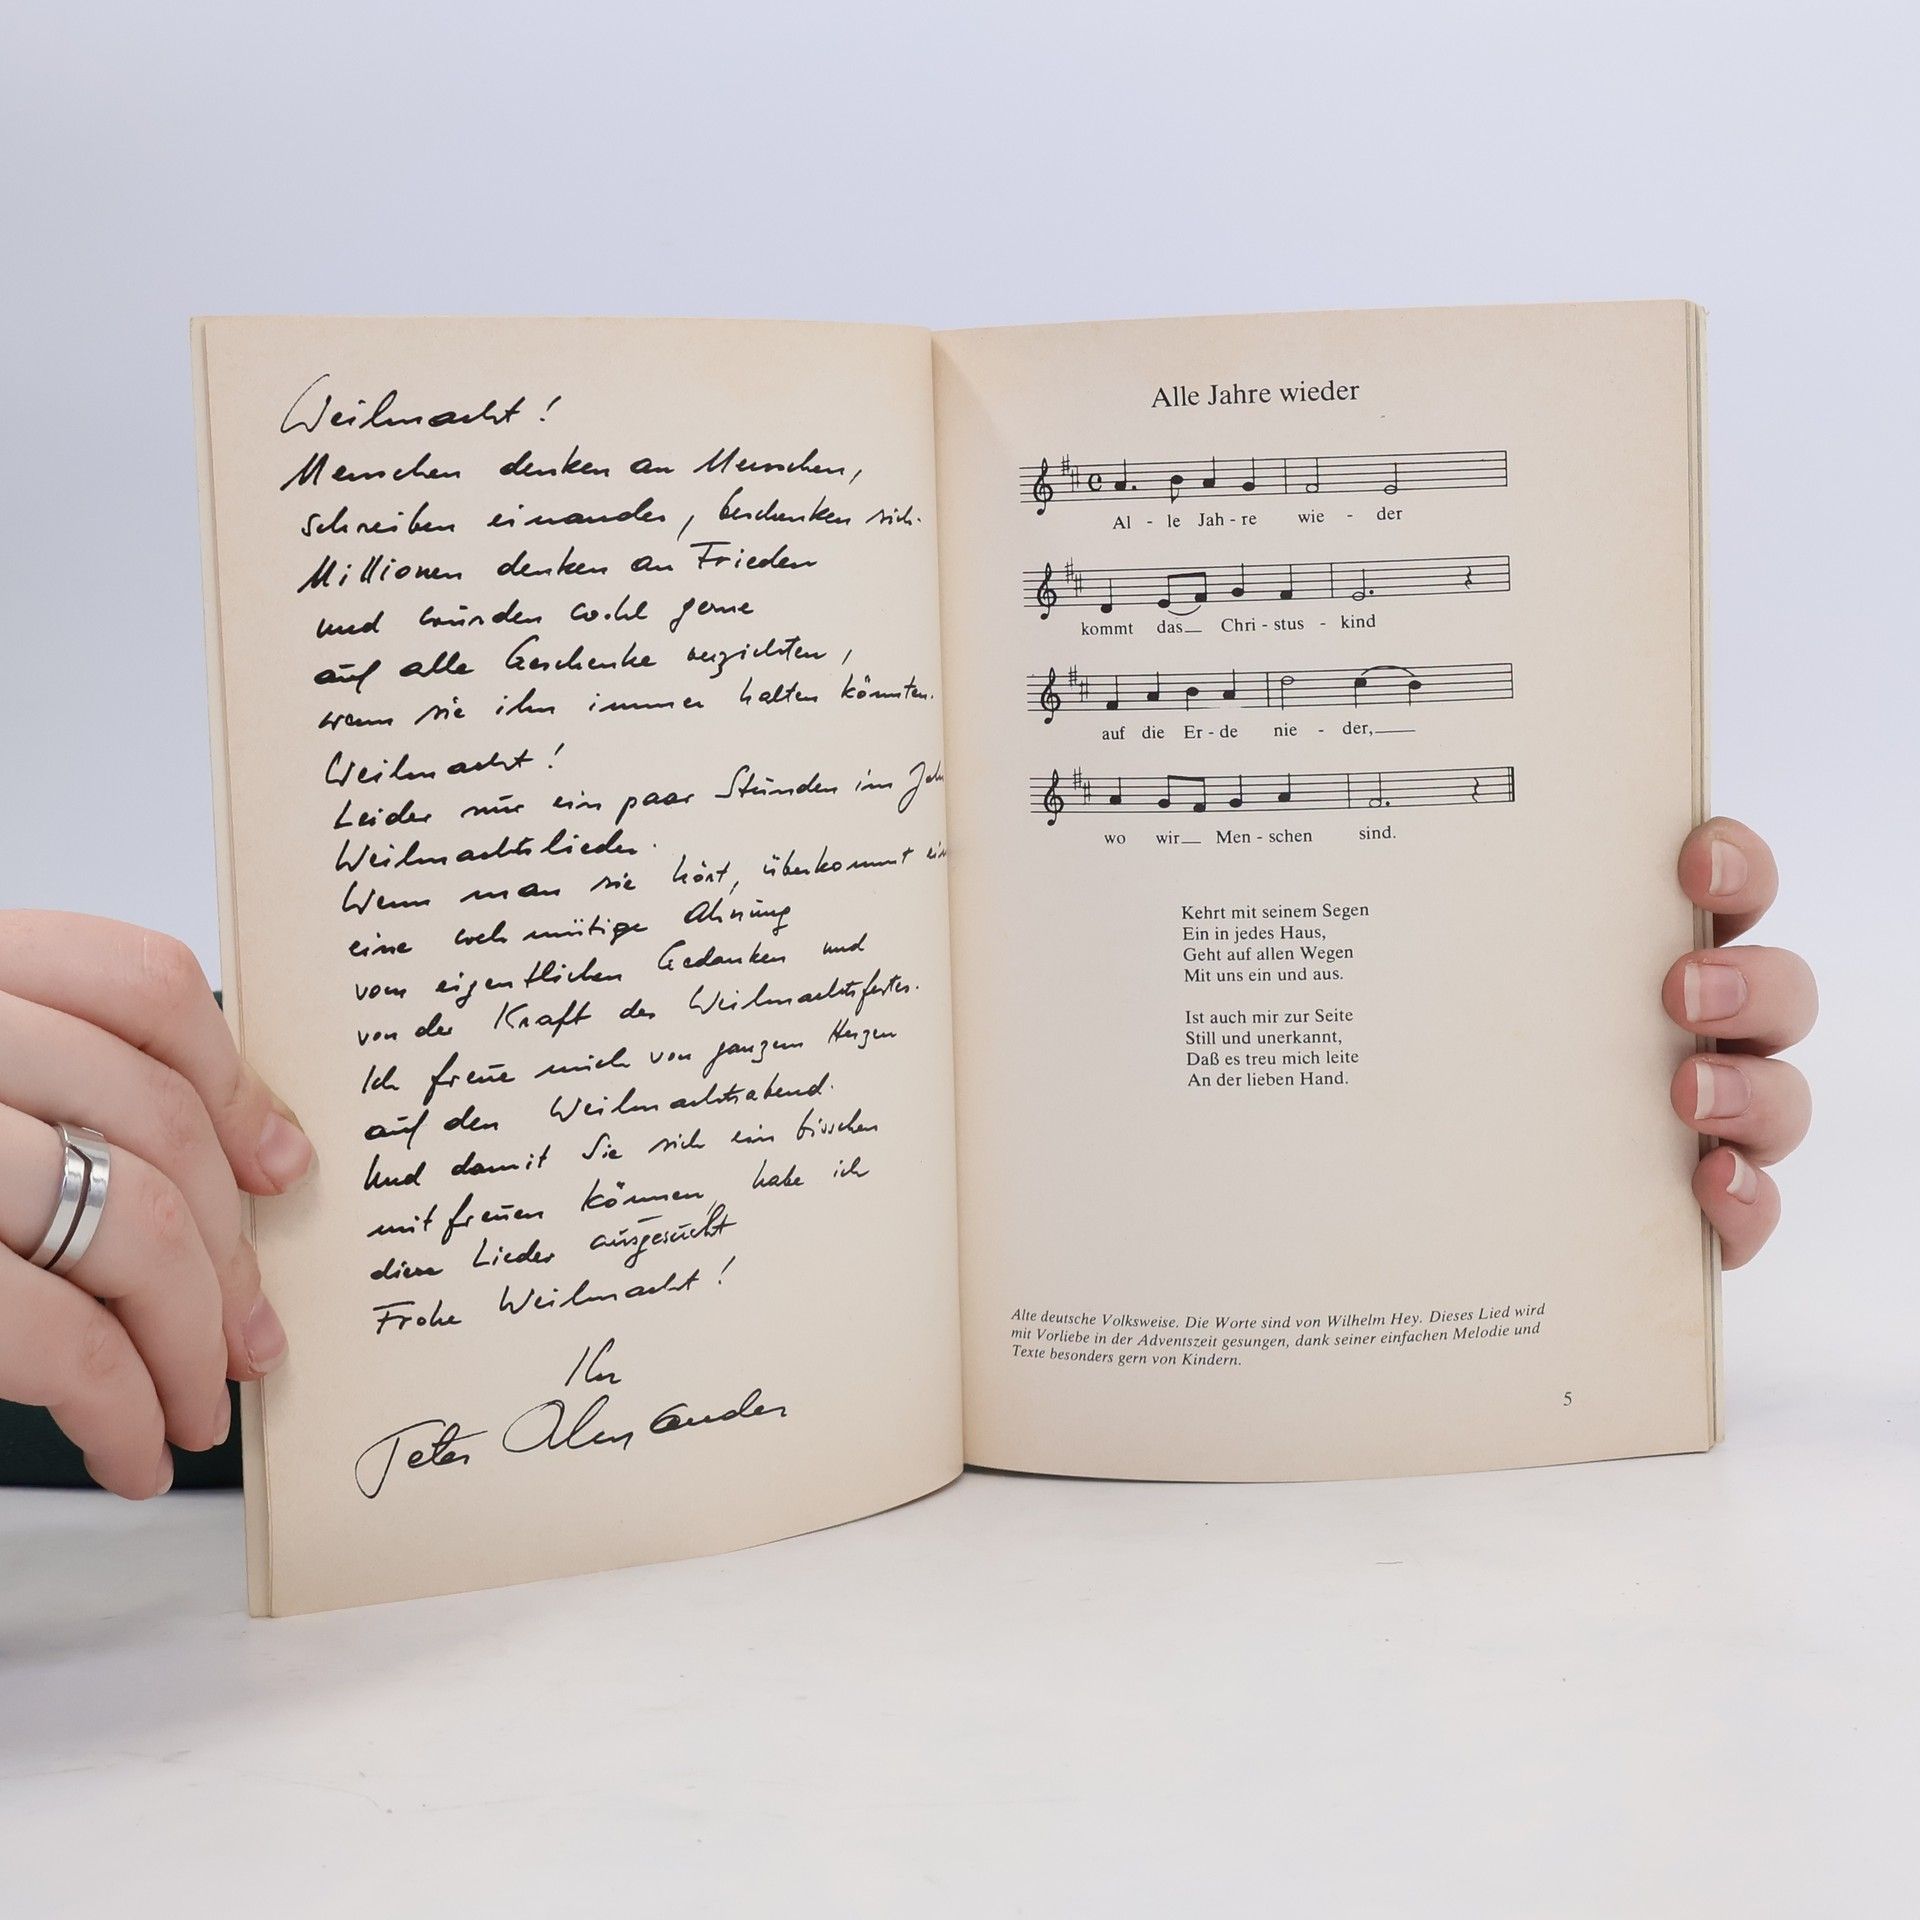 Weihnacht!
Menschen denken an Menschen,
schreiben einander, beschenken sich.
Millionen denken an Frieden
und würden wohl gerne
auf alle Geschenke verzichten,
wenn sie ihn immer halten könnten.
Weihnacht!
Leider nur ein paar Stunden im Jah
Weihnachtslieder.
Wenn man sie hört, überkommt ein
eine wehmütige Ahnung
vom eigentlichen Gedanken und
von der Kraft des Weihnachtsfestes.
Ich freue mich von ganzem Herzen
auf den Weihnachtsabend.
Und damit Sie sich ein bisschen
mitfreuen können, habe ich
diese Lieder ausgesucht
Frohe Weihnacht!
Ihr
Peter Alexander
Alle Jahre wieder
Al - le Jah - re wie - der
kommt das Chri - stus - kind
auf die Er - de nie - der,
wo wir Men - schen sind.
Kehrt mit seinem Segen
Ein in jedes Haus,
Geht auf allen Wegen
Mit uns ein und aus.
Ist auch mir zur Seite
Still und unerkannt,
Daß es treu mich leite
An der lieben Hand.
Alte deutsche Volksweise. Die Worte sind von Wilhelm Hey. Dieses Lied wird
mit Vorliebe in der Adventszeit gesungen, dank seiner einfachen Melodie und
Texte besonders gern von Kindern.
5